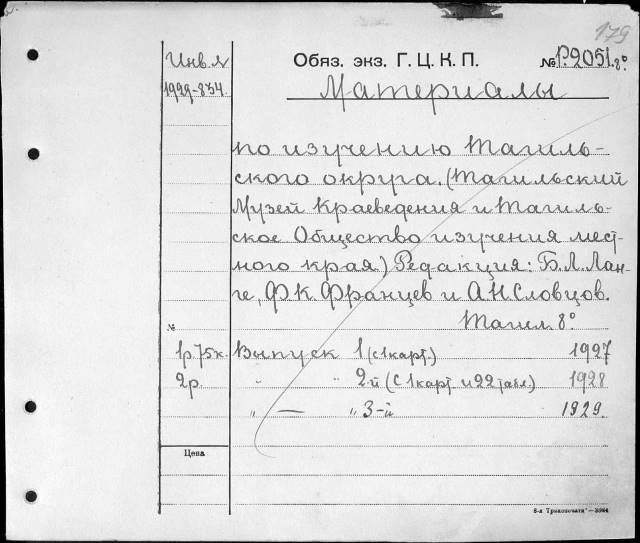 179
Инв. №
1929-834.
Обяз. экз. Г. Ц. К. П.
№ P.2051. 8°
Материалы
по изучению Тагиль-
ского округа. (Тагильский
Музей Краеведения и Тагиль-
ское Общество изучения мест-
ного края) Редакция: Б. Л. Лан-
ге, Ф. К. Францев и А. Н. Словцов.
Тагил. 8°
№
1р. 75 к. Выпуск 1 (с 1 карт.) 1927
2р. " " 2-й (с 1 карт. и 22 табл.) 1928
" — " 3-й 1929.
Цена